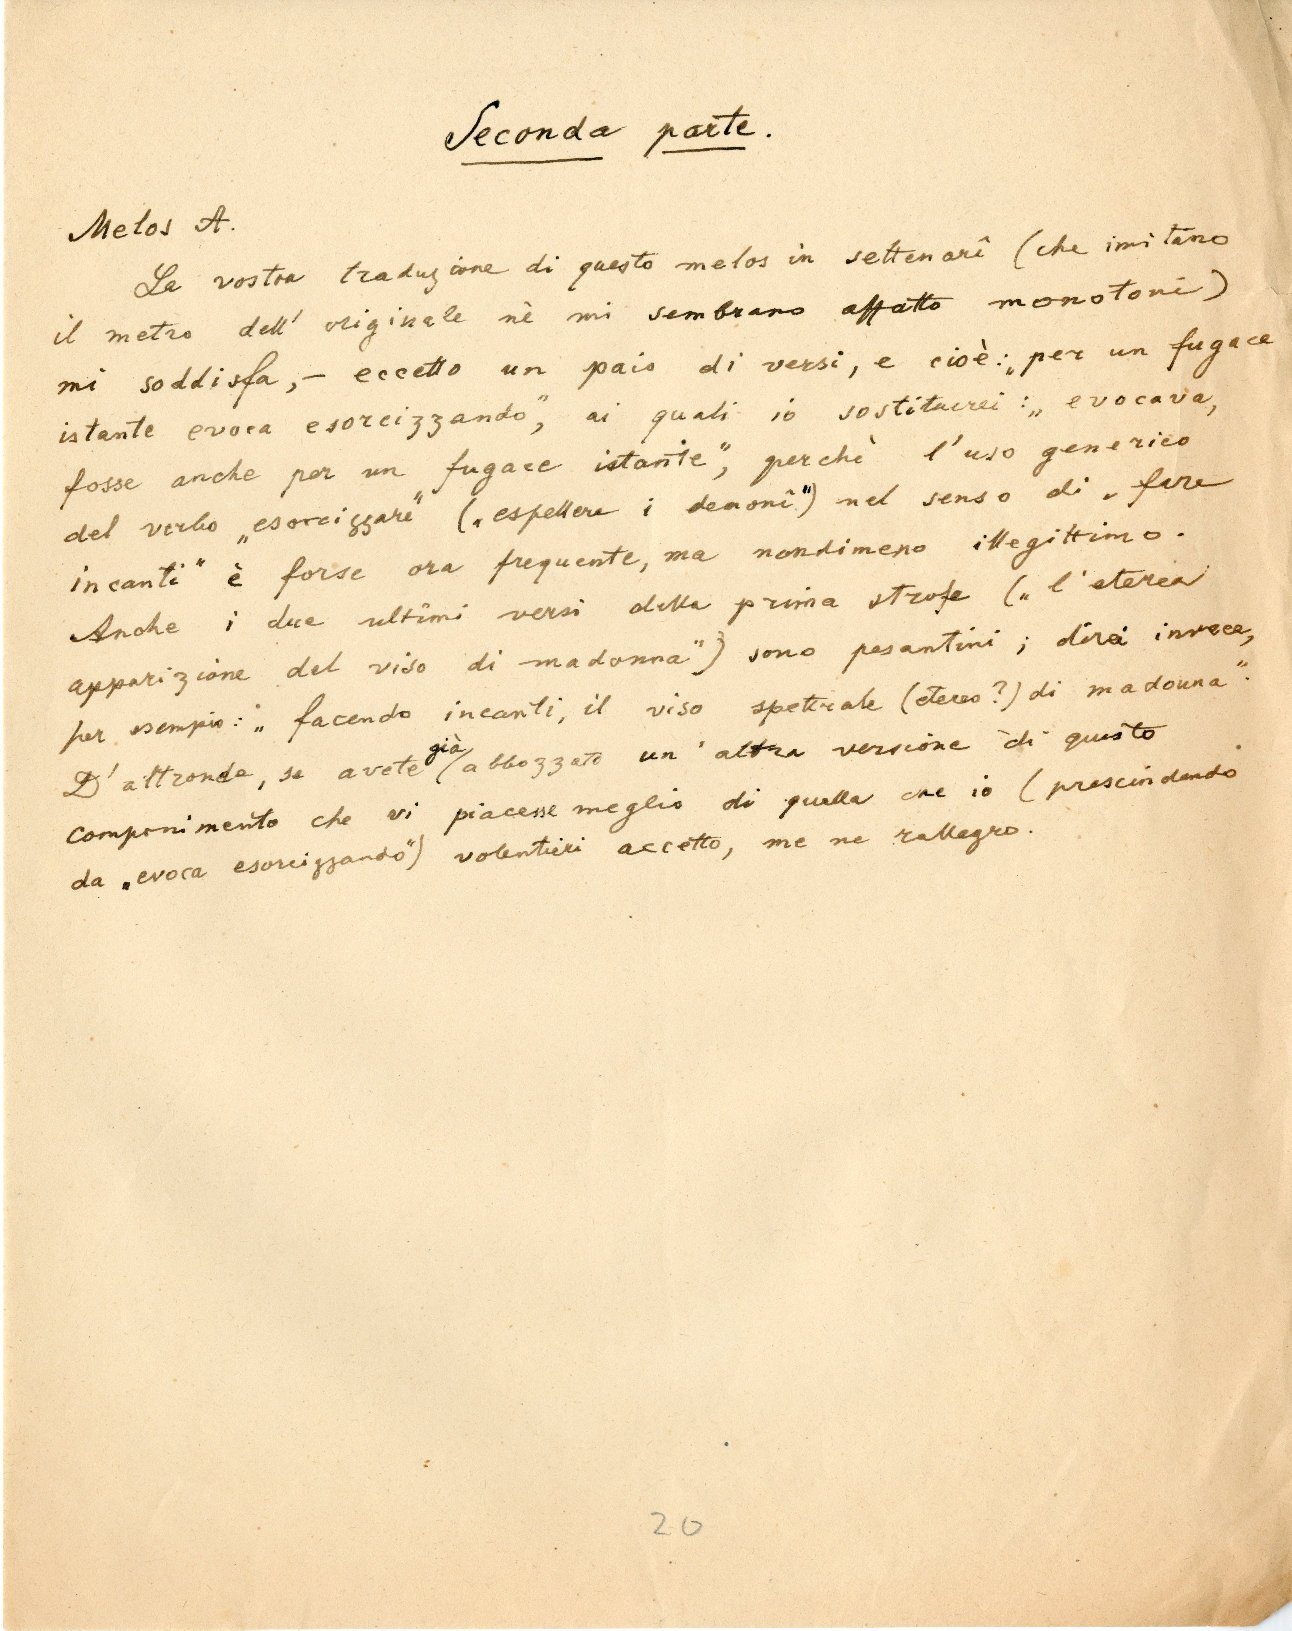 Seconda parte.
Melos A.
La vostra traduzione di questo melos in settenarî (che imitano
il metro dell' originale nè mi sembrano affatto monotoni)
mi soddisfa, – eccetto un paio di versi, e cioè: „per un fugace
istante evoca esorcizzando", ai quali io sostituirei: „evocava,
fosse anche per un fugace istante", perchè l'uso generico
del verbo „esorcizzare" („espellere i demonî") nel senso di „fare
incanti" è forse ora frequente, ma nondimeno illegittimo.
Anche i due ultimi versi della prima strofe („l'eterea
apparizione del viso di madonna") sono pesantini; direi invece,
per esempio: „facendo incanti, il viso spettrale (etereo?) di madonna".
D'altronde, se avete già abbozzato un' altra versione di questo
componimento che vi piacesse meglio di quella che io (prescindendo
da „evoca esorcizzando") volentieri accetto, me ne rallegro.
20